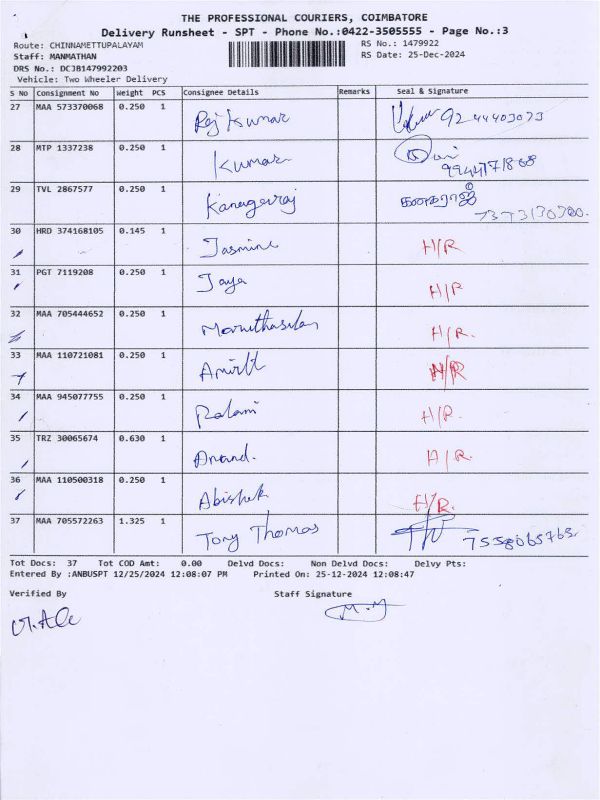 THE PROFESSIONAL COURIERS, COIMBATORE
Delivery Runsheet - SPT - Phone No.:0422-3505555 - Page No.:3
Route: CHINNAMETTUPALAYAM RS No.: 1479922
Staff: MANMATHAN RS Date: 25-Dec-2024
DRS No.: DCJB147992203
Vehicle: Two Wheeler Delivery
S No Consignment No Weight PCS Consignee Details Remarks Seal & Signature
27 MAA 573370068 0.250 1 Raj Kumar 9244403073
28 MTP 1337238 0.250 1 Kumar
29 TVL 2867577 0.250 1 Kanagaraj கனகராஜ்
30 HRD 374168105 0.145 1 Jasmine H/R
31 PGT 7119208 0.250 1 Jaya H/R
32 MAA 705444652 0.250 1 H/R.
33 MAA 110721081 0.250 1 H/R
34 MAA 945077755 0.250 1 Palani H/R.
35 TRZ 30065674 0.630 1 Anand. H/R.
36 MAA 110500318 0.250 1 Abishek H/R.
37 MAA 705572263 1.325 1 Tony Thomas 7558065765.
Tot Docs: 37 Tot COD Amt: 0.00 Delvd Docs: Non Delvd Docs: Delvy Pts:
Entered By :ANBUSPT 12/25/2024 12:08:07 PM Printed On: 25-12-2024 12:08:47
Verified By Staff Signature